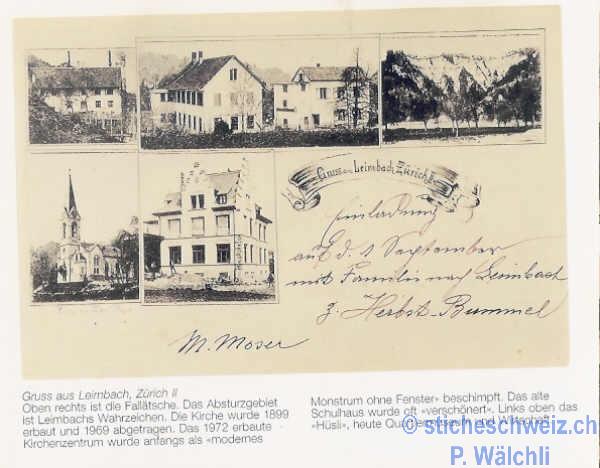 Gruss aus Leimbach, Zürich II
Einladung
auf d. 1 September
mit Familie nach Leimbach
z. Herbst-Bummel
M. Moser
Gruss aus Leimbach, Zürich II
Oben rechts ist die Fallätsche. Das Absturzgebiet
ist Leimbachs Wahrzeichen. Die Kirche wurde 1899
erbaut und 1969 abgetragen. Das 1972 erbaute
Kirchenzentrum wurde anfangs als «modernes
Monstrum ohne Fenster» beschimpft. Das alte
Schulhaus wurde oft «verschönert». Links oben das
«Hüsli», heute Quartiermuseum und Wirtschaft.
© sticheschweiz.ch
P. Wälchli